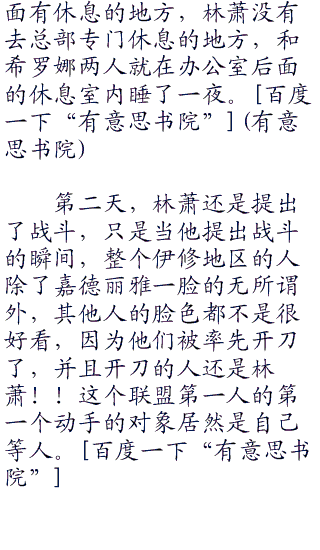 面有休息的地方，林萧没有
去总部专门休息的地方，和
希罗娜两人就在办公室后面
的休息室内睡了一夜。[百度
一下“有意思书院”](有意
思书院)
第二天，林萧还是提出
了战斗，只是当他提出战斗
的瞬间，整个伊修地区的人
除了嘉德丽雅一脸的无所谓
外，其他人的脸色都不是很
好看，因为他们被率先开刀
了，并且开刀的人还是林
萧！！这个联盟第一人的第
一个动手的对象居然是自己
等人。[百度一下“有意思书
院”]